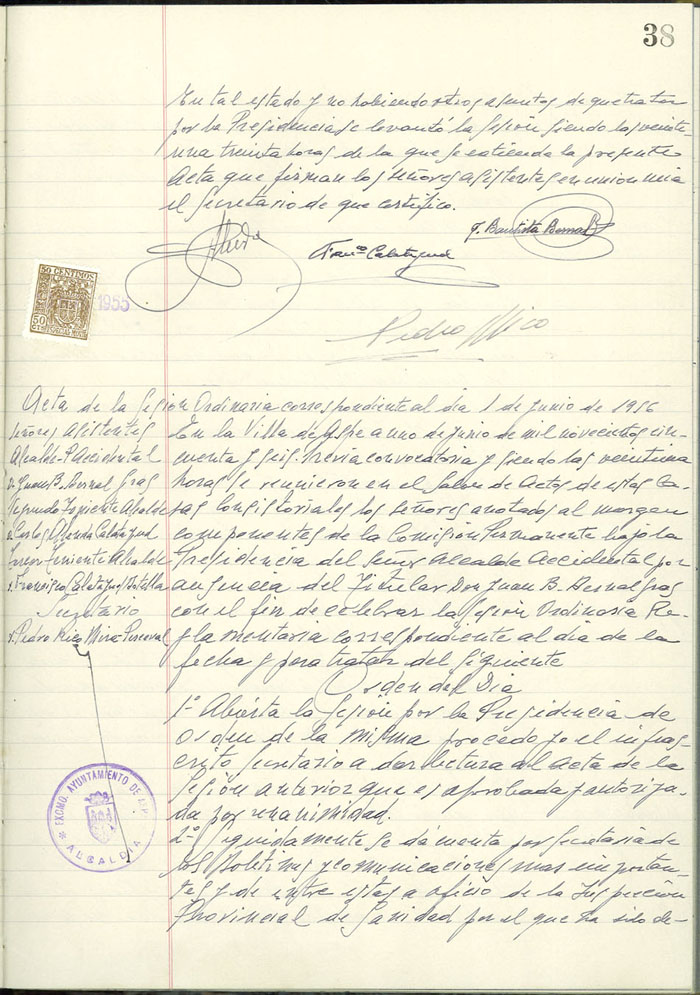 38
En tal estado y no habiendo otros asuntos de que tratar
por la Presidencia se levantó la sesión siendo las veinte-
una treinta horas de la que se extiende la presente
Acta que firman los señores asistentes en union mia
el Secretario de que certifico.
J. Bautista Bernal
Franco Calatayud
50 CENTIMOS
50
1955
Pedro Rico
Acta de la Sesion Ordinaria correspondiente al dia 1 de Junio de 1956
Señores Asistentes
Alcalde-P Accidental
D. Juan B. Bernal Gras
Segundo Teniente Alcalde
D. Carlos Calatayud
Tercer Teniente Alcalde
D. Francisco Calatayud Botella
Secretario
D. Pedro Rico Mira-Perceval
En la Villa de Aspe a uno de Junio de mil novecientos cin-
cuenta y seis. Previa convocatoria y siendo las veintiuna
horas se reunieron en el Salon de Actos de estas Ca-
sas Consistoriales los señores anotados al margen
componentes de la Comisión Permanente bajo la
Presidencia del Señor Alcalde Accidental por
ausencia del Titular Don Juan B. Bernal Gras
con el fin de celebrar la sesion Ordinaria Re-
glamentaria correspondiente al dia de la
fecha y para tratar del siguiente
Orden del Dia
1º Abierta la sesión por la Presidencia de
Orden de la misma procedo yo el infras-
crito Secretario a dar lectura al acta de la
sesión anterior que es aprobada y autoriza-
da por unanimidad.
2º Seguidamente se dá cuenta por Secretaria de
los Boletines y comunicaciones mas importan-
tes y de entre estas a oficio de la Inspección
Provincial de Sanidad por el que ha sido de-
EXCMO. AYUNTAMIENTO DE
ALCALDIA